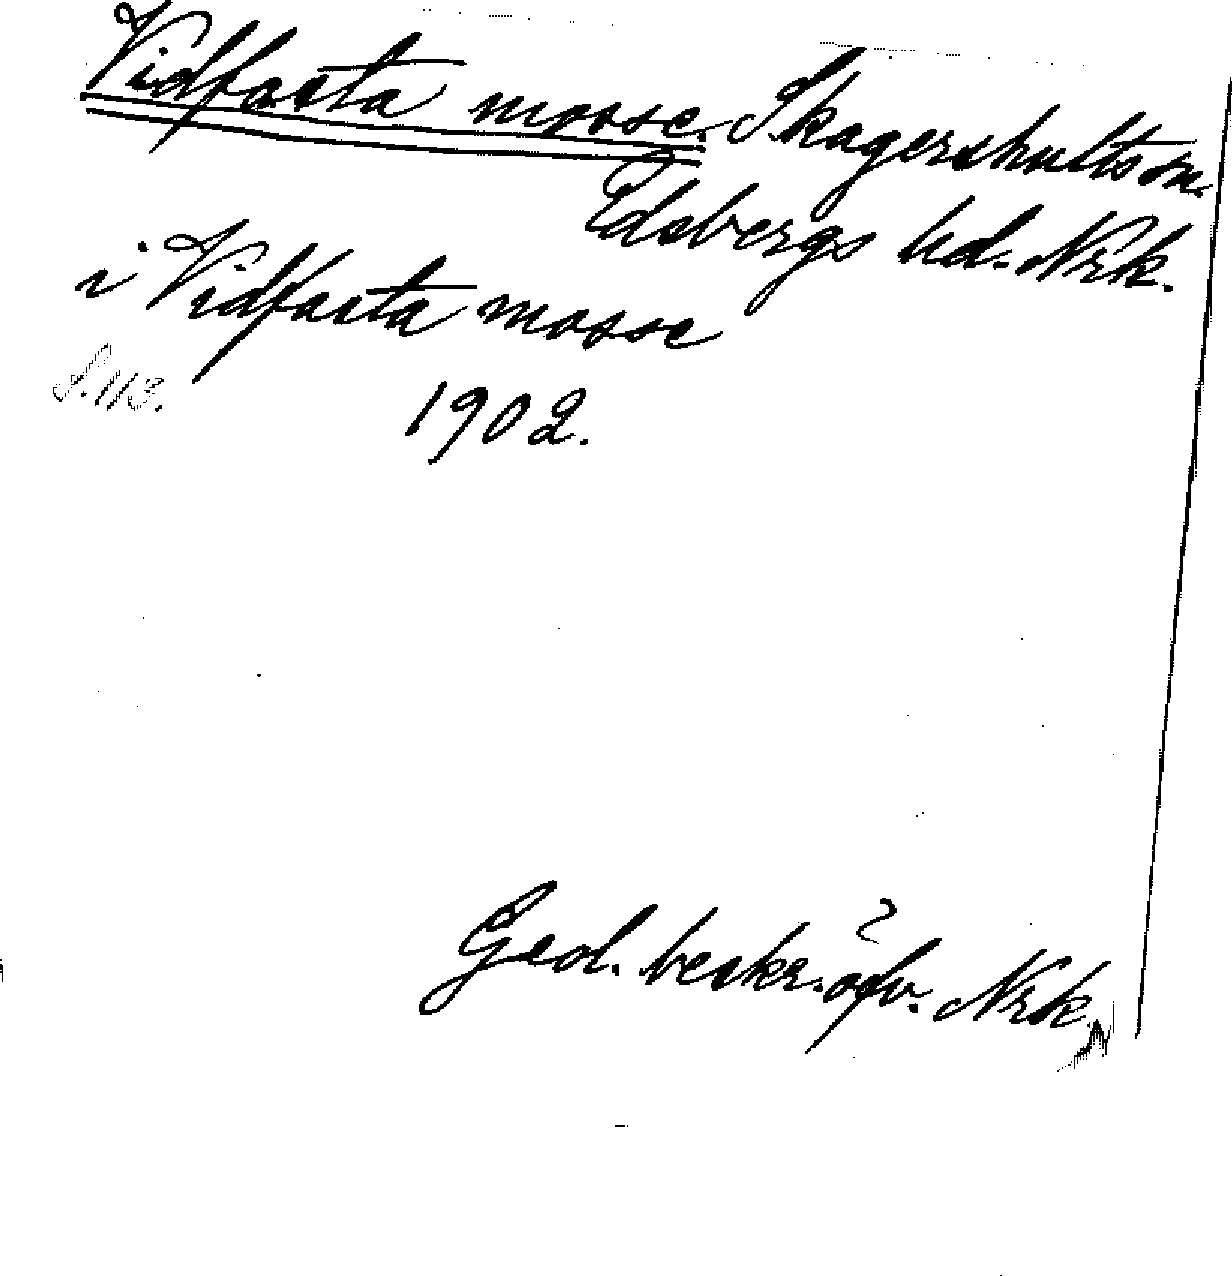 Vidfasta mosse. Skagershults sn.
Edsbergs hd. Nrk.
i Vidfasta mosse
S. 113.
1902.
Geol. beskr. öfv. Nrk.